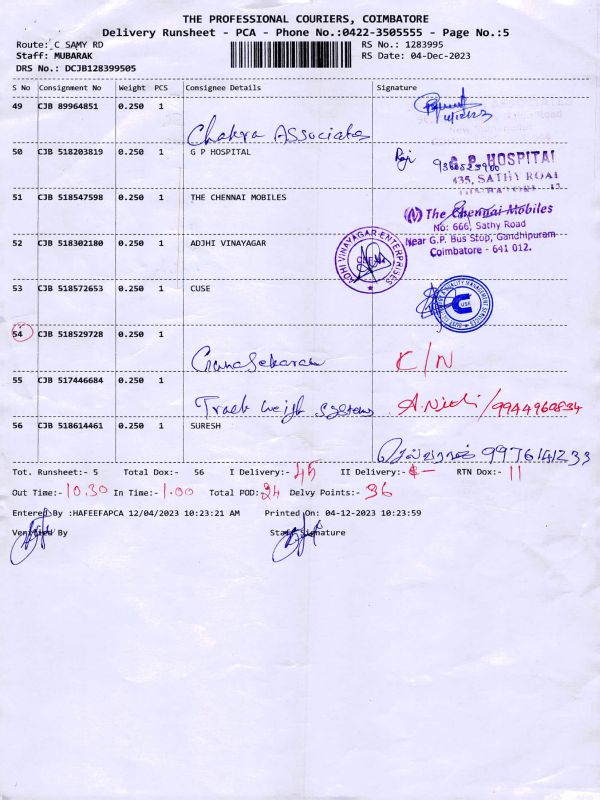 THE PROFESSIONAL COURIERS, COIMBATORE
Delivery Runsheet - PCA - Phone No.:0422-3505555 - Page No.:5
Route: C SAMY RD RS No.: 1283995
Staff: MUBARAK RS Date: 04-Dec-2023
DRS No.: DCJB128399505
S No Consignment No Weight PCS Consignee Details Signature
49 CJB 89964851 0.250 1
Chakra Associates
50 CJB 518203819 0.250 1 G P HOSPITAL
G. P. HOSPITAL
435, SATHY ROAD
51 CJB 518547598 0.250 1 THE CHENNAI MOBILES
The Chennai Mobiles
No: 666, Sathy Road
Near G.P. Bus Stop, Gandhipuram
Coimbatore - 641 012.
52 CJB 518302180 0.250 1 ADJHI VINAYAGAR
ADHI VINAYAGAR ENTERPRISES
53 CJB 518572653 0.250 1 CUSE
54 CJB 518529728 0.250 1
Gunasekaran C/N
55 CJB 517446684 0.250 1
Track weigh systems
56 CJB 518614461 0.250 1 SURESH
9976141233
Tot. Runsheet:- 5 Total Dox:- 56 I Delivery:- 45 II Delivery:- RTN Dox:- 11
Out Time:- 10.30 In Time:- 1.00 Total POD:- 24 Delvy Points:- 36
Entered By :HAFEEFAPCA 12/04/2023 10:23:21 AM Printed On: 04-12-2023 10:23:59
Verified By Staff Signature